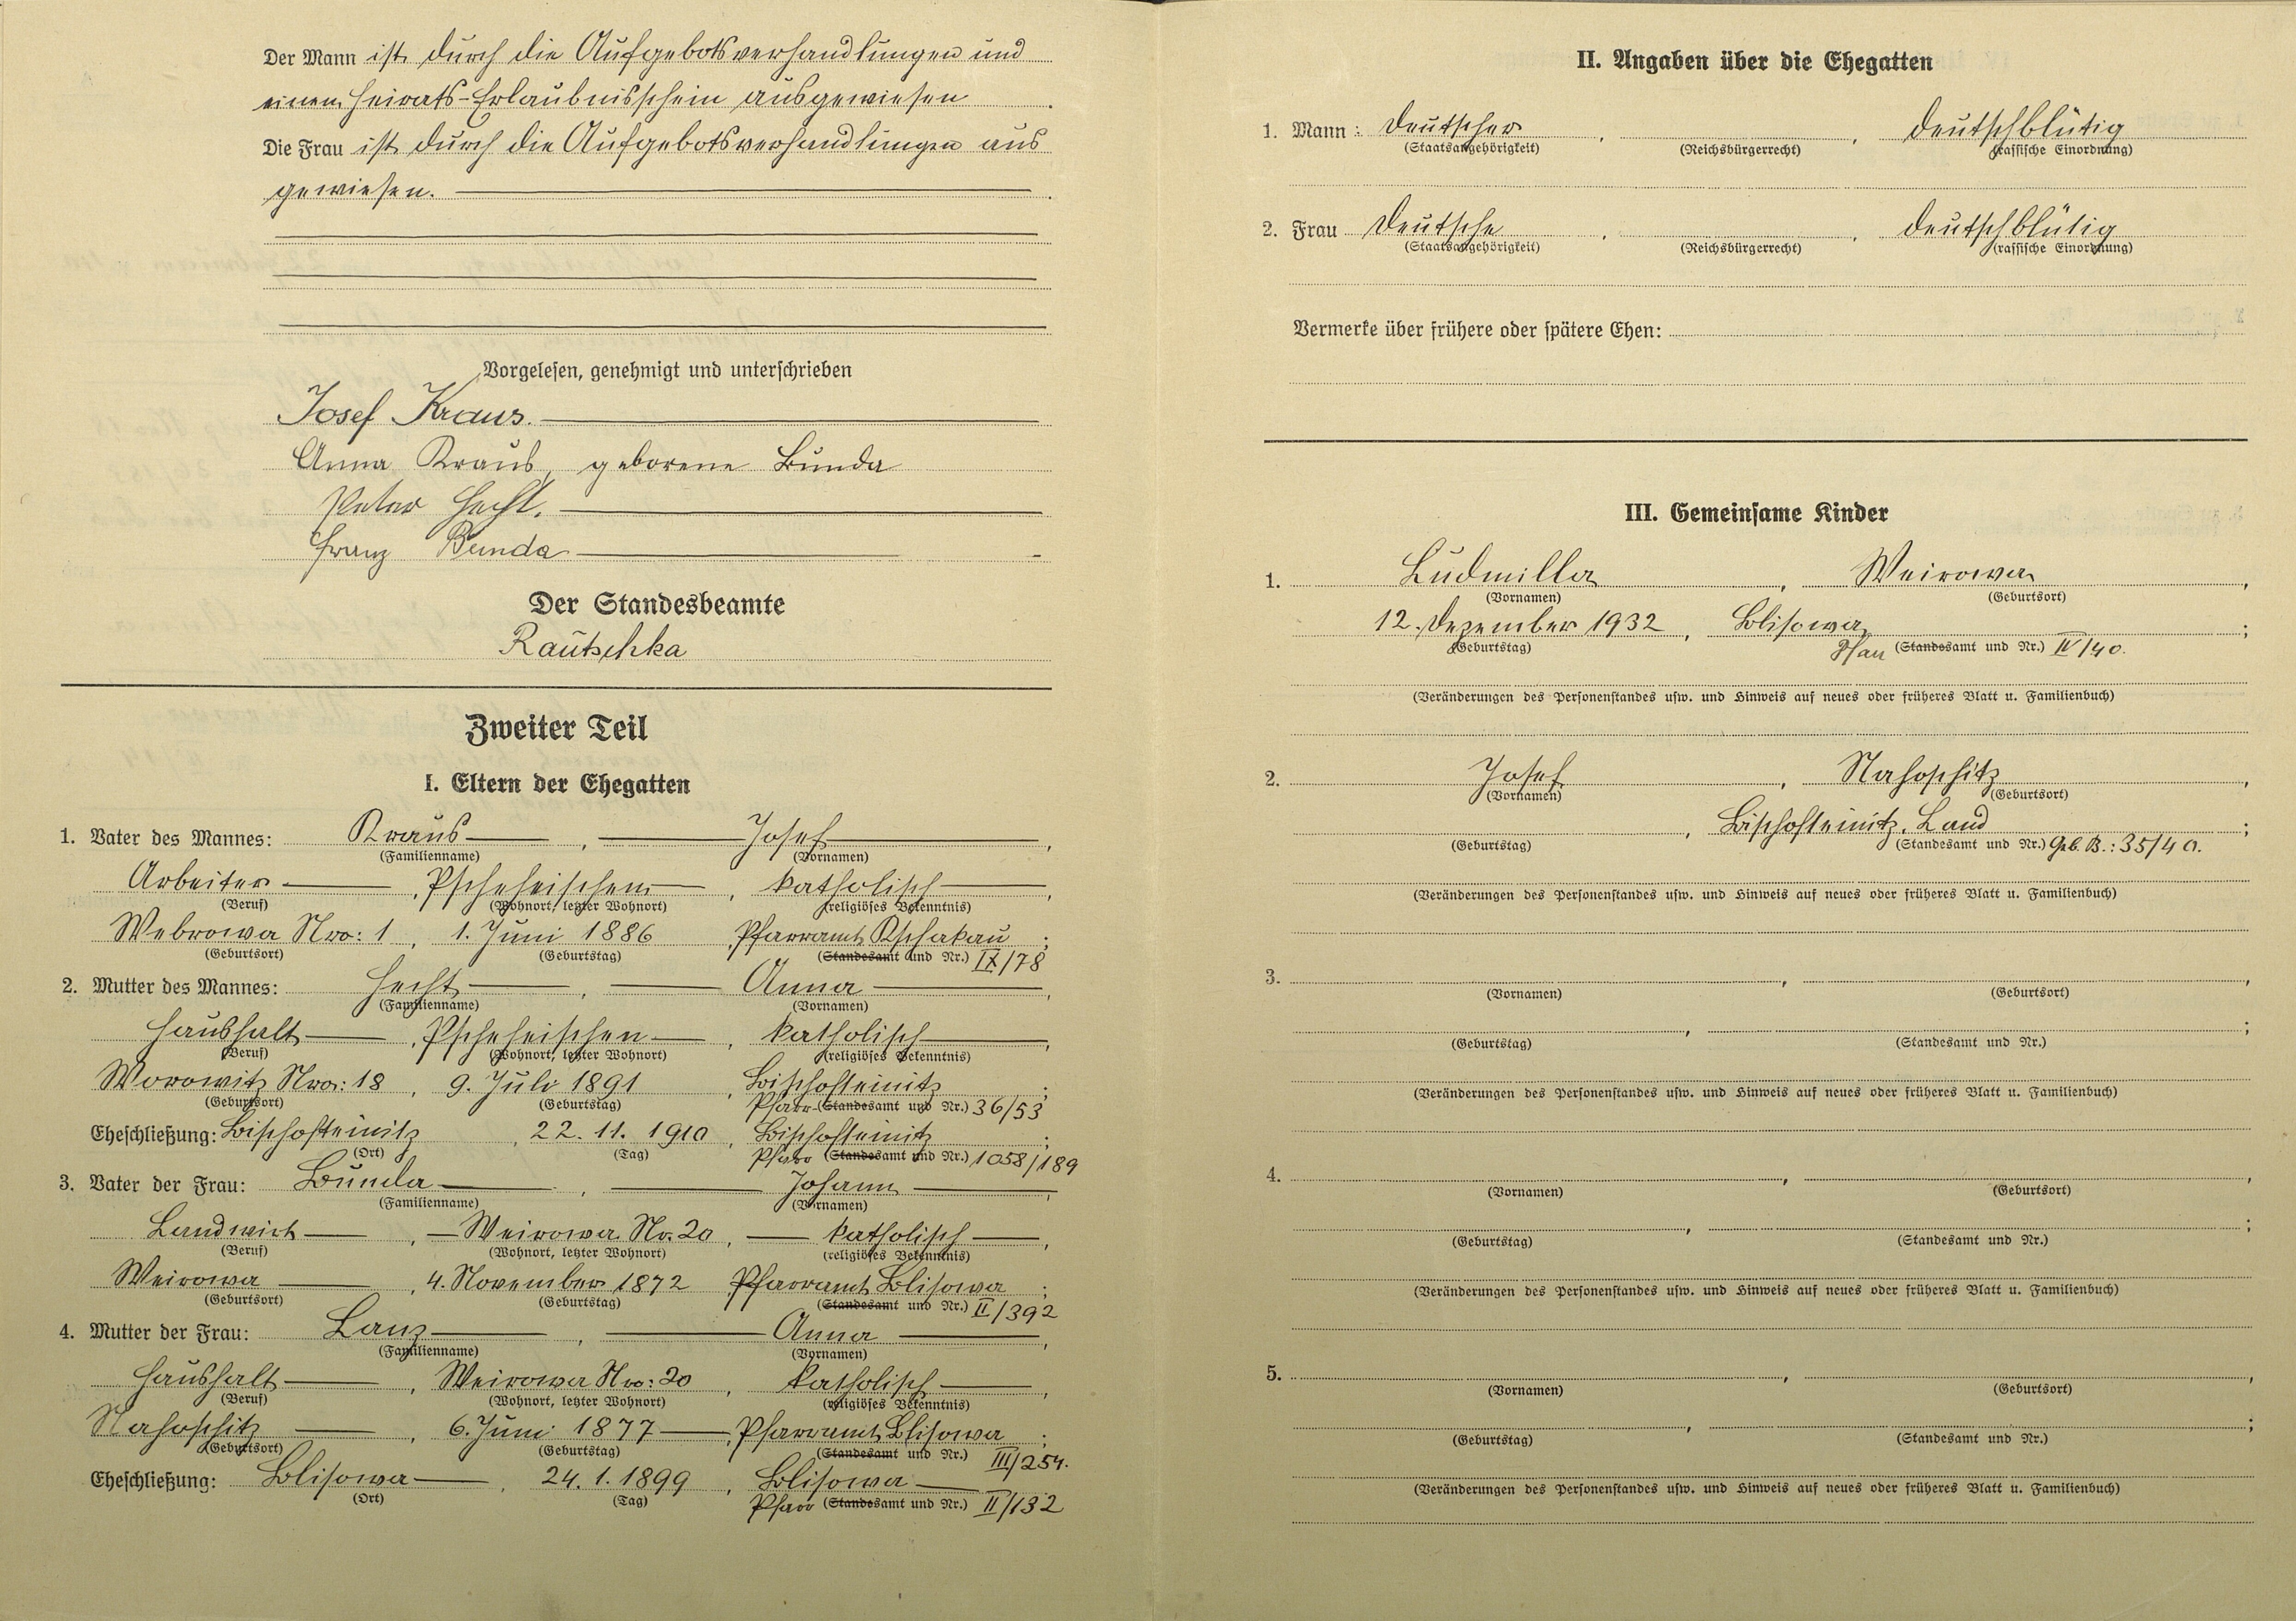 Der Mann ist durch die Aufgebotsverhandlungen und
einen Heirats-Erlaubnisschein ausgewiesen.
Die Frau ist durch die Aufgebotsverhandlungen aus
gewiesen.
Vorgelesen, genehmigt und unterschrieben
Josef Kraus.
Anna Kraus, geborene Bunda
Peter Hecht.
Franz Bunda
Der Standesbeamte
Rautschka
Zweiter Teil
I. Eltern der Ehegatten
1. Vater des Mannes: Kraus, Josef,
(Familienname) (Vornamen)
Arbeiter, Pscheheischen, katholisch,
(Beruf) (Wohnort, letzter Wohnort) (religiöses Bekenntnis)
Webrowa Nro: 1, 1. Juni 1886, Pfarramt Kschakau;
(Geburtsort) (Geburtstag) (Standesamt und Nr.) IX/78
2. Mutter des Mannes: Hecht, Anna,
(Familienname) (Vornamen)
Haushalt, Pscheheischen, katholisch,
(Beruf) (Wohnort, letzter Wohnort) (religiöses Bekenntnis)
Worowitz Nro: 18, 9. Juli 1891, Bischofteinitz;
(Geburtsort) (Geburtstag) Pfarr (Standesamt und Nr.) 36/53
Eheschließung: Bischofteinitz, 22. 11. 1910, Bischofteinitz;
(Ort) (Tag) Pfarr (Standesamt und Nr.) 1058/189
3. Vater der Frau: Bunda, Johann,
(Familienname) (Vornamen)
Landwirt, Weirowa Nr. 20, katholisch,
(Beruf) (Wohnort, letzter Wohnort) (religiöses Bekenntnis)
Weirowa, 4. November 1872 Pfarramt Blisowa;
(Geburtsort) (Geburtstag) (Standesamt und Nr.) II/392
4. Mutter der Frau: Lanz, Anna,
(Familienname) (Vornamen)
Haushalt, Weirowa Nro: 20, katholisch,
(Beruf) (Wohnort, letzter Wohnort) (religiöses Bekenntnis)
Nahoschitz, 6. Juni 1877, Pfarramt Blisowa;
(Geburtsort) (Geburtstag) (Standesamt und Nr.) III/254.
Eheschließung: Blisowa, 24. 1. 1899, Blisowa
(Ort) (Tag) Pfarr (Standesamt und Nr.) II/132
II. Angaben über die Ehegatten
1. Mann: Deutscher, , deutschblütig
(Staatsangehörigkeit) (Reichsbürgerrecht) (rassische Einordnung)
2. Frau Deutsche, , deutschblütig
(Staatsangehörigkeit) (Reichsbürgerrecht) (rassische Einordnung)
Vermerke über frühere oder spätere Ehen:
III. Gemeinsame Kinder
1. Ludmilla, Weirowa,
(Vornamen) (Geburtsort)
12. Dezember 1932, Blisowa;
(Geburtstag) Pfarr (Standesamt und Nr.) IV/40.
(Veränderungen des Personenstandes usw. und Hinweis auf neues oder früheres Blatt u. Familienbuch)
2. Josef, Nahoschitz,
(Vornamen) (Geburtsort)
, Bischofteinitz, Land;
(Geburtstag) (Standesamt und Nr.) Geb. B.: 35/40.
(Veränderungen des Personenstandes usw. und Hinweis auf neues oder früheres Blatt u. Familienbuch)
3. , ,
(Vornamen) (Geburtsort)
, ;
(Geburtstag) (Standesamt und Nr.)
(Veränderungen des Personenstandes usw. und Hinweis auf neues oder früheres Blatt u. Familienbuch)
4. , ,
(Vornamen) (Geburtsort)
, ;
(Geburtstag) (Standesamt und Nr.)
(Veränderungen des Personenstandes usw. und Hinweis auf neues oder früheres Blatt u. Familienbuch)
5. , ,
(Vornamen) (Geburtsort)
, ;
(Geburtstag) (Standesamt und Nr.)
(Veränderungen des Personenstandes usw. und Hinweis auf neues oder früheres Blatt u. Familienbuch)